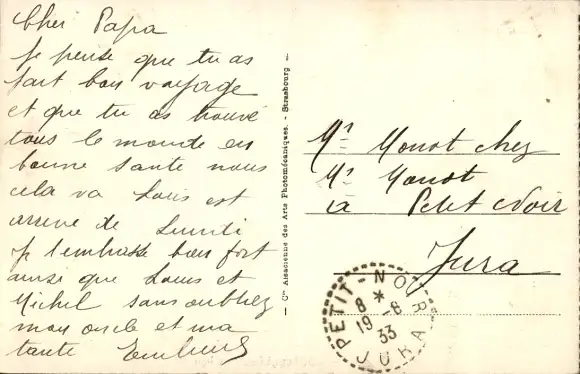 Cher Papa
Je pense que tu as
fait bon voyage
et que tu as trouvé
tous le monde en
bonne sante nous
cela va Louis est
arrive de Lundi
Je t'embrasse bien fort
ainsi que Louis et
Michel sans oublier
mon oncle et ma
tante
— Cie Alsacienne des Arts Photomécaniques. - Strasbourg —
Mr Monot chez
Mr Monot
à Petit Noir
Jura
PETIT-NOIR
8 *
19 -8
33
JURA